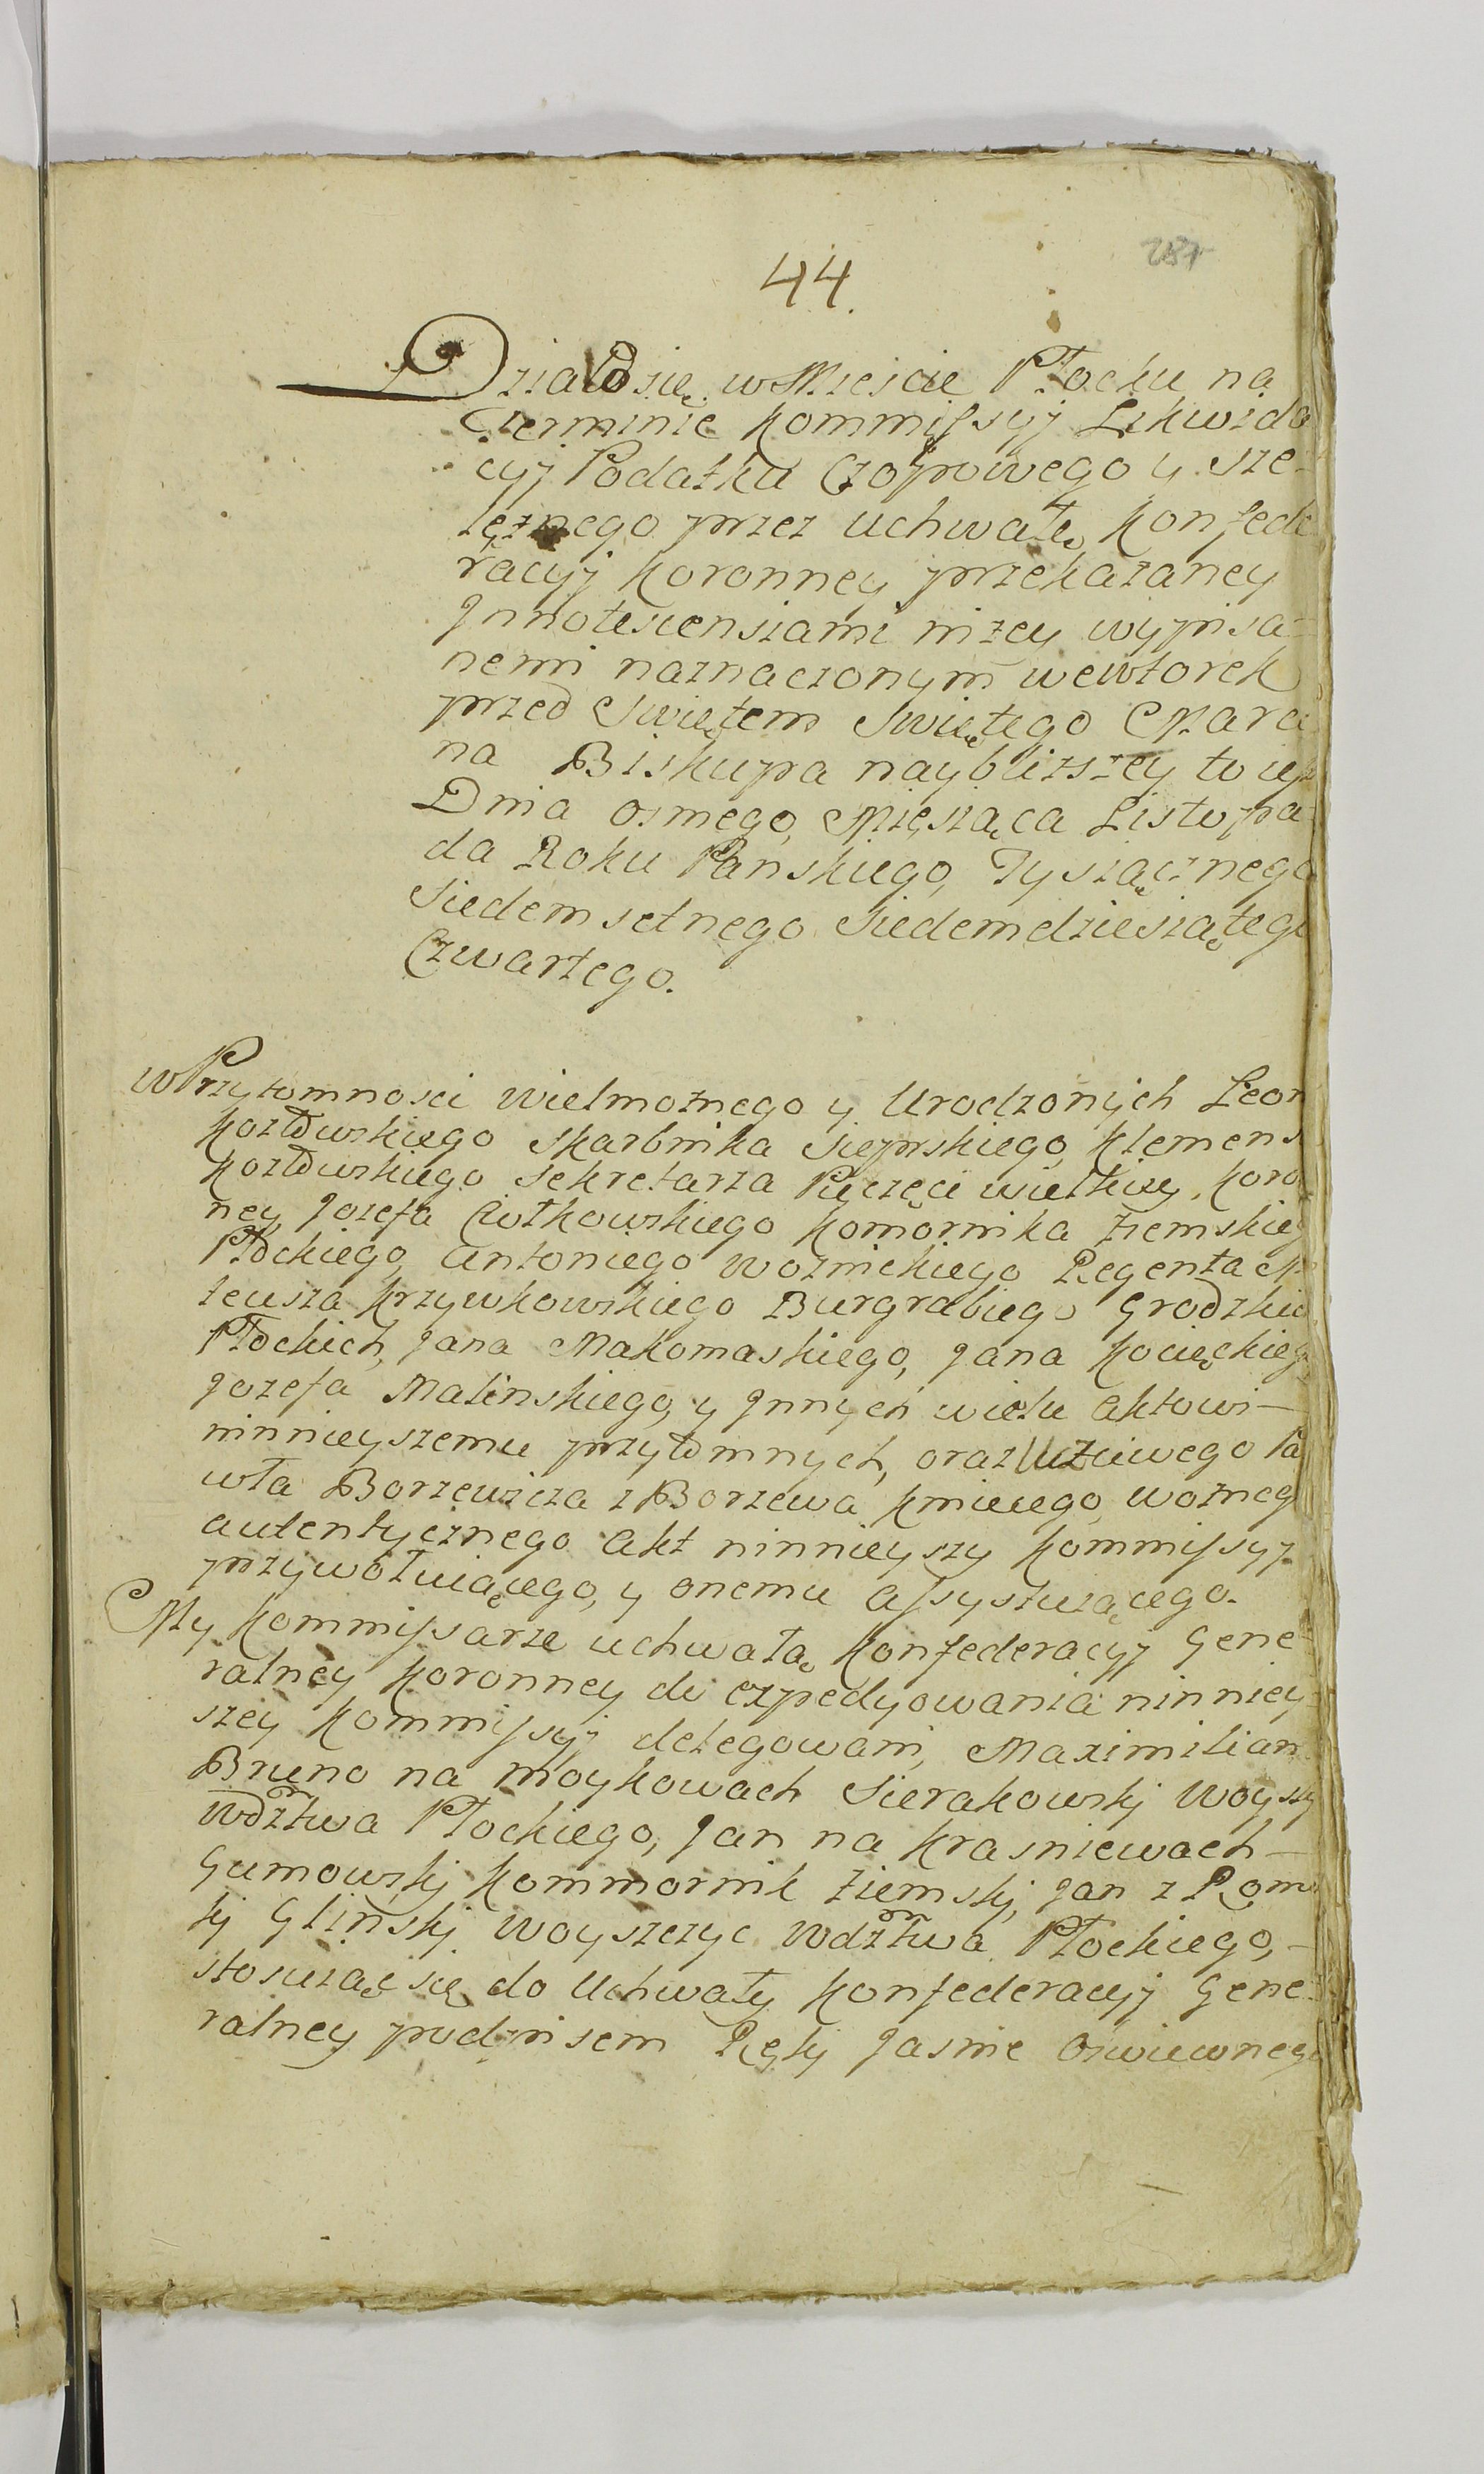 287
44.
Działo się w Mieście Płocku na
Terminie Kommissyj Likwida
cyj Podatku Czopowego y Sze-
lężnego przez uchwałę Konfede
racyj Koronney przekazaney
Jnnotescensiami niżey wypisa-
nemi naznaczonym we wtorek
przed Swiętem Swiętego Marci
na Biskupa naybliższey to iest
Dnia osmego Miesiąca Listopa-
da Roku Pańskiego Tysiącznego
Siedemsetnego Siedemdziesiątego
Czwartego.
w Przytomności Wielmożnego y Urodzonych Leon
Kozłowskiego Skarbnika Sieprskiego, Klemens
Kozłowskiego Sekretarza Pieczęci wielkiey Koro
ney Jozefa Ciołkowskiego Komornika Ziemskieg
Płockiego, Antoniego Woznickiego Regenta M
teusza Krzywkowskiego Burgrabiego Grodzkic
Płockich, Jana Makomaskiego, Jana Kocięckieg
Jozefa Malinskiego, y Jnnych wielu Aktowi
ninnieyszemu przytomnych, oraz Uczciwego Pa
wła Borzewicza z Borzewa Kmiecego, Woźneg
autentycznego Akt ninnieyszy Kommissyj
przywołuiącego, y onemu assystuiącego.
My Kommissarze uchwałą Konfederacyj Gene-
ralney Koronney do expedyowania ninniey-
szey Kommissyj delegowani, Maximilian
Bruno na Moykowach Sierakowskj Woyski
Wdztwa Płockiego, Jan na Krasniewach
Gumowskj Kommornik Ziemskj, Jan z
kj Glinskj Woyszczyc Wdztwa Płockiego,
stosuiąc się do Uchwały Konfederacyj Gene-
ralney podpisem Rękj Jasnie Oswieconego